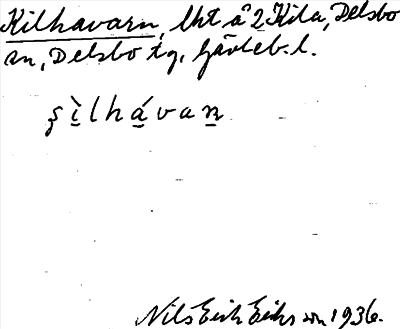 Kilhavarn, lht å 2 Kila, Delsbo
sn, Delsbo tg, Gävleb. l.
ʂìlháva​n̲
Nils Erik Eriksson 1936.